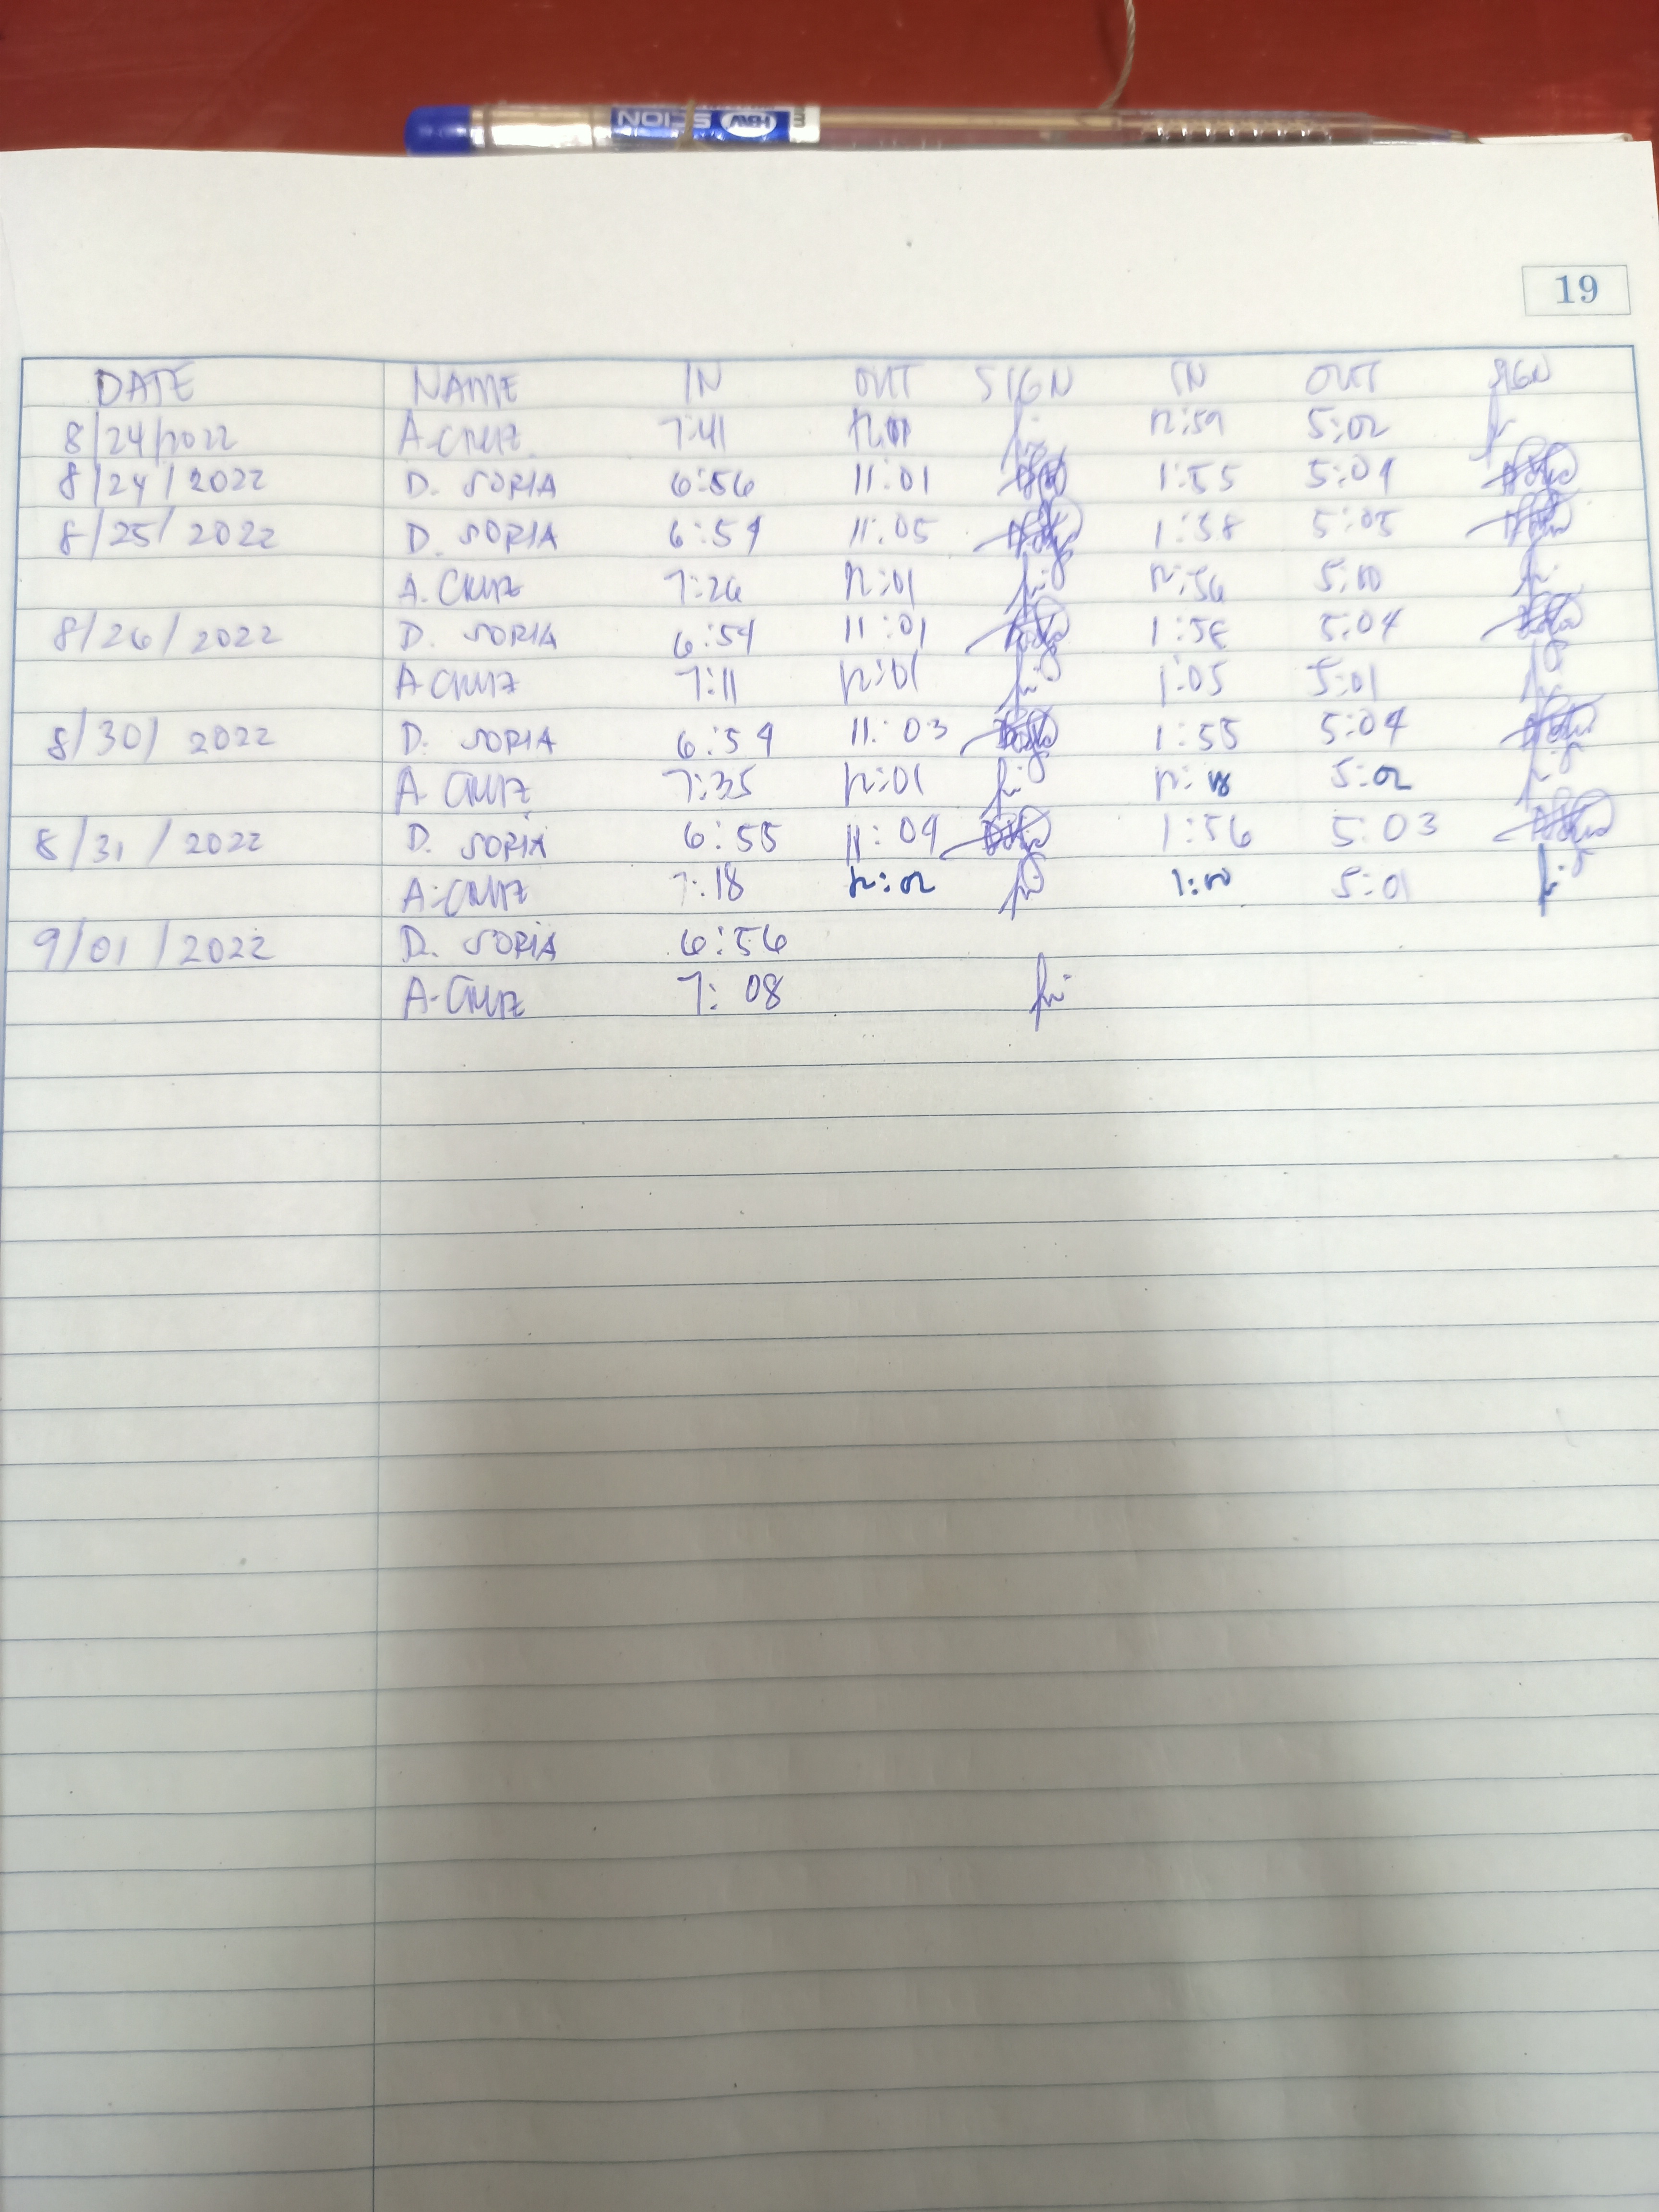 HBW
19
DATE NAME IN OUT SIGN IN OUT SIGN
8/24/2022 A. CRUZ 7:41 12:59 5:02
8/24/2022 D. SORIA 6:56 11:01 1:55 5:04
8/25/2022 D. SORIA 6:54 11:05 1:58 5:05
A. CRUZ 7:26 12:01 12:56 5:10
8/26/2022 D. SORIA 6:54 11:01 1:58 5:04
A CRUZ 7:11 12:01 1:05 5:01
8/30/2022 D. SORIA 6:54 11:03 1:55 5:04
A CRUZ 7:35 12:01 5:02
8/31/2022 D. SORIA 6:55 11:04 1:56 5:03
A. CRUZ 7:18 12:02 1:10 5:01
9/01/2022 D. SORIA 6:56
A. CRUZ 7:08